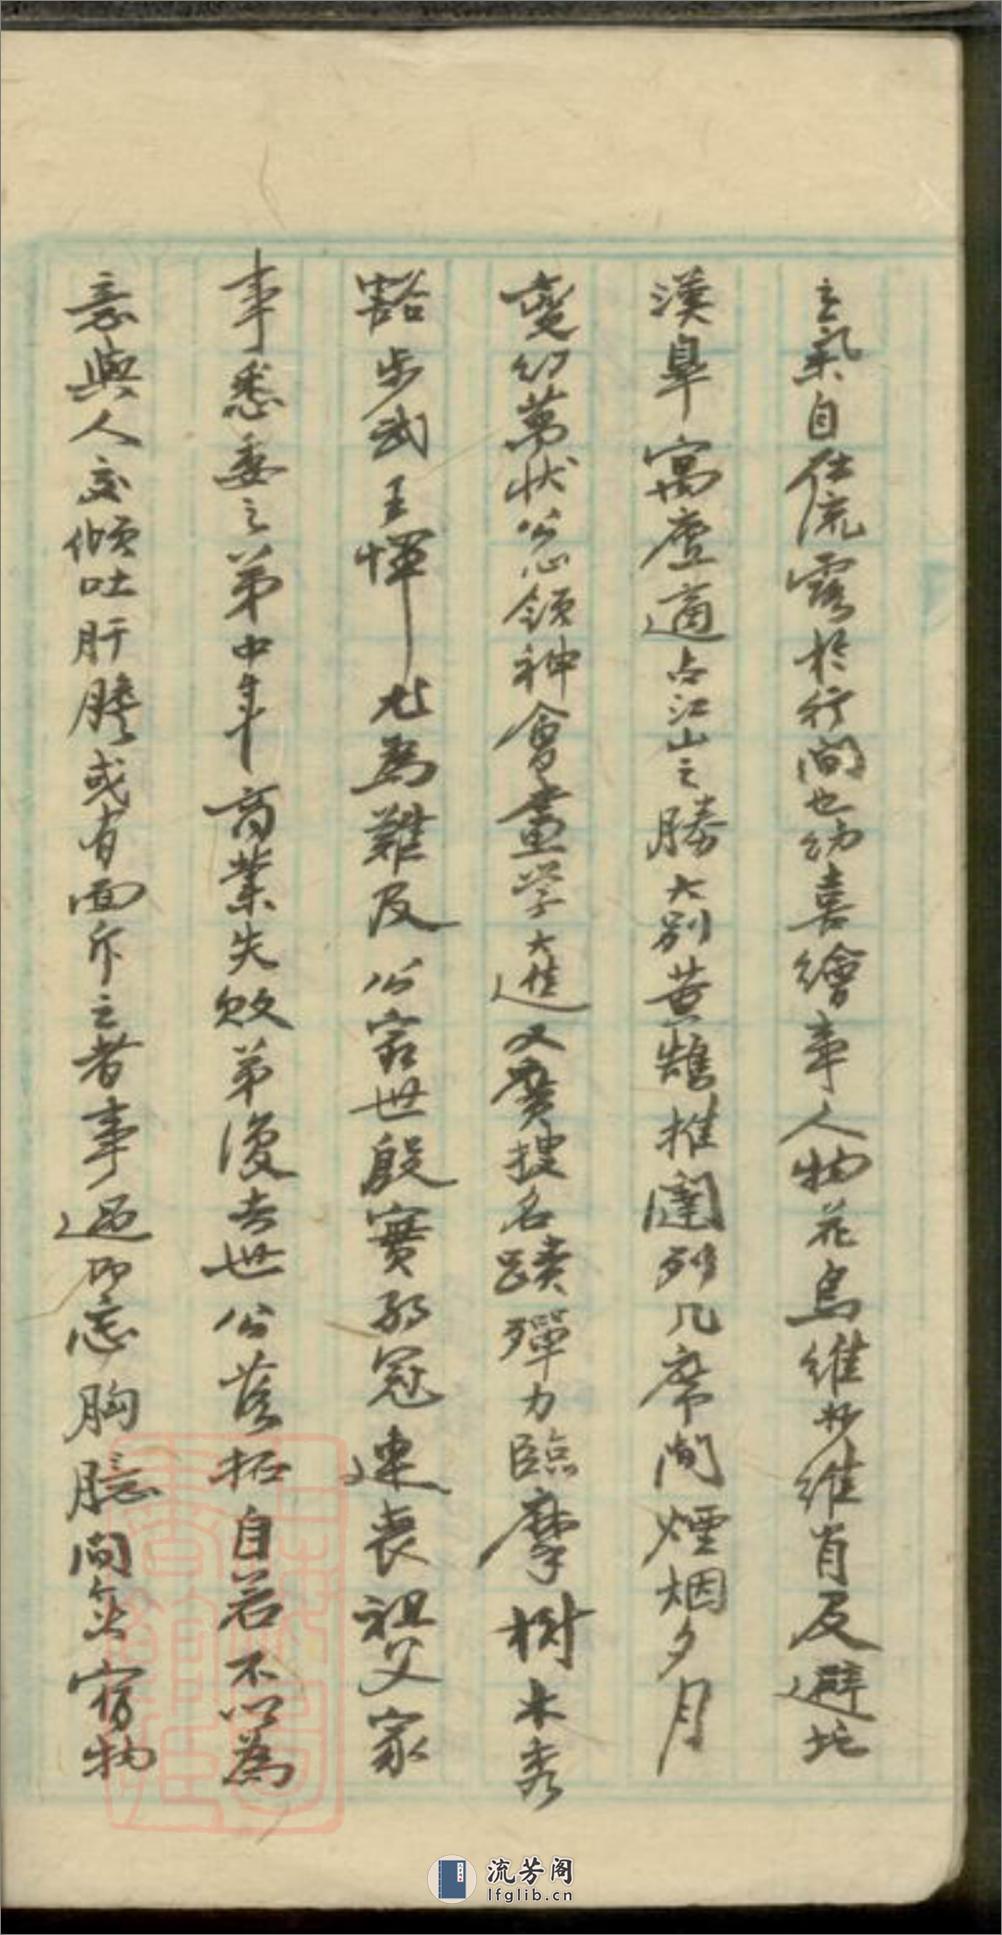 之氣自在流露於行間也幼喜繪事人物花鳥維妙維肖及避地
漢皐寓廬適占江山之勝大別黃鵠推闥列几席間煙烟夕月
變幻萬狀公心領神會畫学大進又廣搜名蹟殫力臨摩樹木秀
豁步武王惲尤為難及公家世殷實弱冠連丧祖父家
事悉委之弟中年商業失敗弟復去世公落拓自若不以為
意與人交傾吐肝膽或有面斥之者事過即忘胸臆間無宿物
流芳阁
lfglib.cn